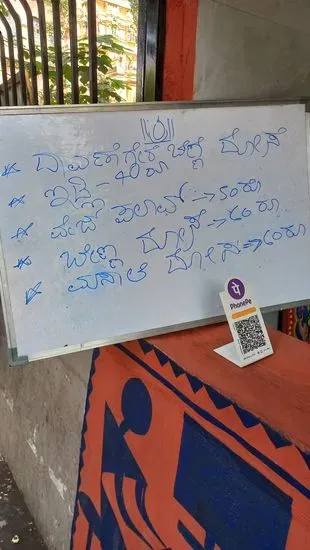 ದಾವಣಗೆರೆ ಬೆಣ್ಣೆ ದೋಸೆ
ಇಡ್ಲಿ - 40 ರೂ
ವೇಜ್ ಪಲಾವ್ → 50 ರೂ
ಬೆಣ್ಣೆ ದೋಸೆ → 60 ರೂ
ಮಸಾಲೆ ದೋಸೆ → 60 ರೂ
PhonePe